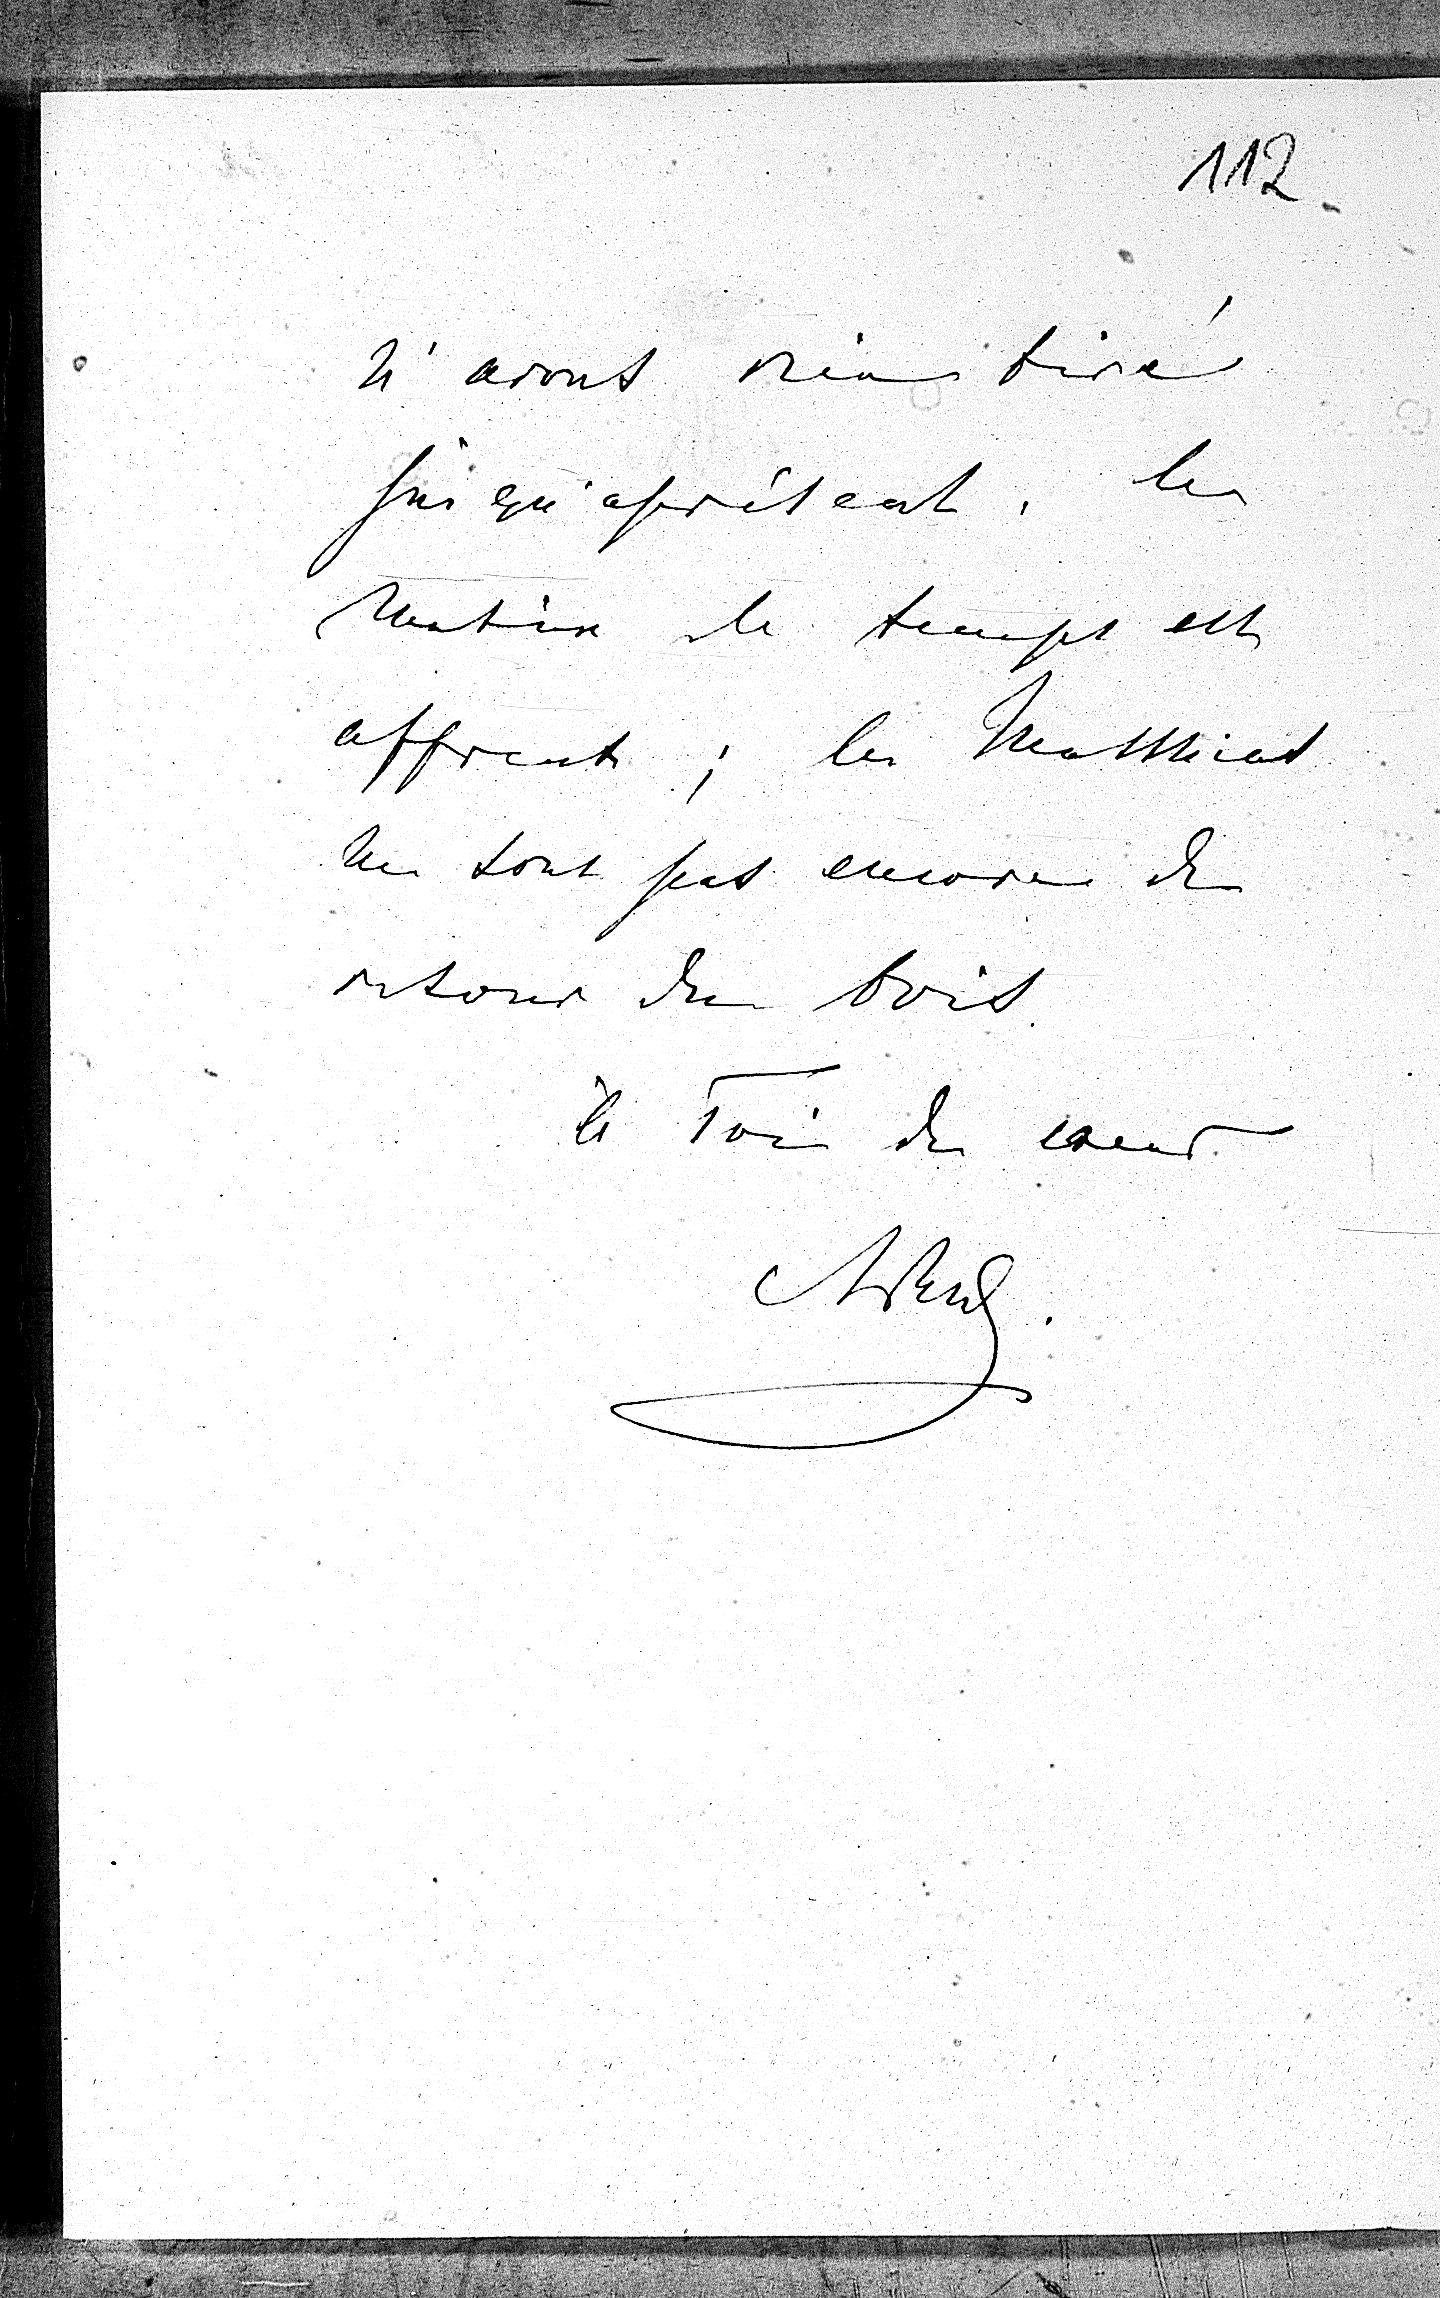 112
n'avons rien tiré
jusqu'aprésent. les
matin le temps est
affreux ; les Matthias
ne sont pas encore de
retour du bois.
à Toi de coeur